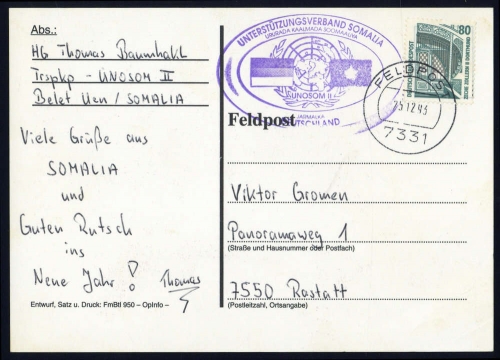 Abs.:
HG Thomas Baumhakl
Trspkp - UNOSOM II
Belet Uen / SOMALIA
Viele Grüße aus
SOMALIA
und
Guten Rutsch
ins
Neue Jahr! Thomas
Entwurf, Satz u. Druck: FmBtl 950 – OpInfo –
UNTERSTÜTZUNGSVERBAND SOMALIA
UNOSOM II
DEUTSCHLAND
Feldpost
80
FELDPOST
7331
Viktor Gromen
Panoramaweg 1
(Straße und Hausnummer oder Postfach)
7550 Rastatt
(Postleitzahl, Ortsangabe)